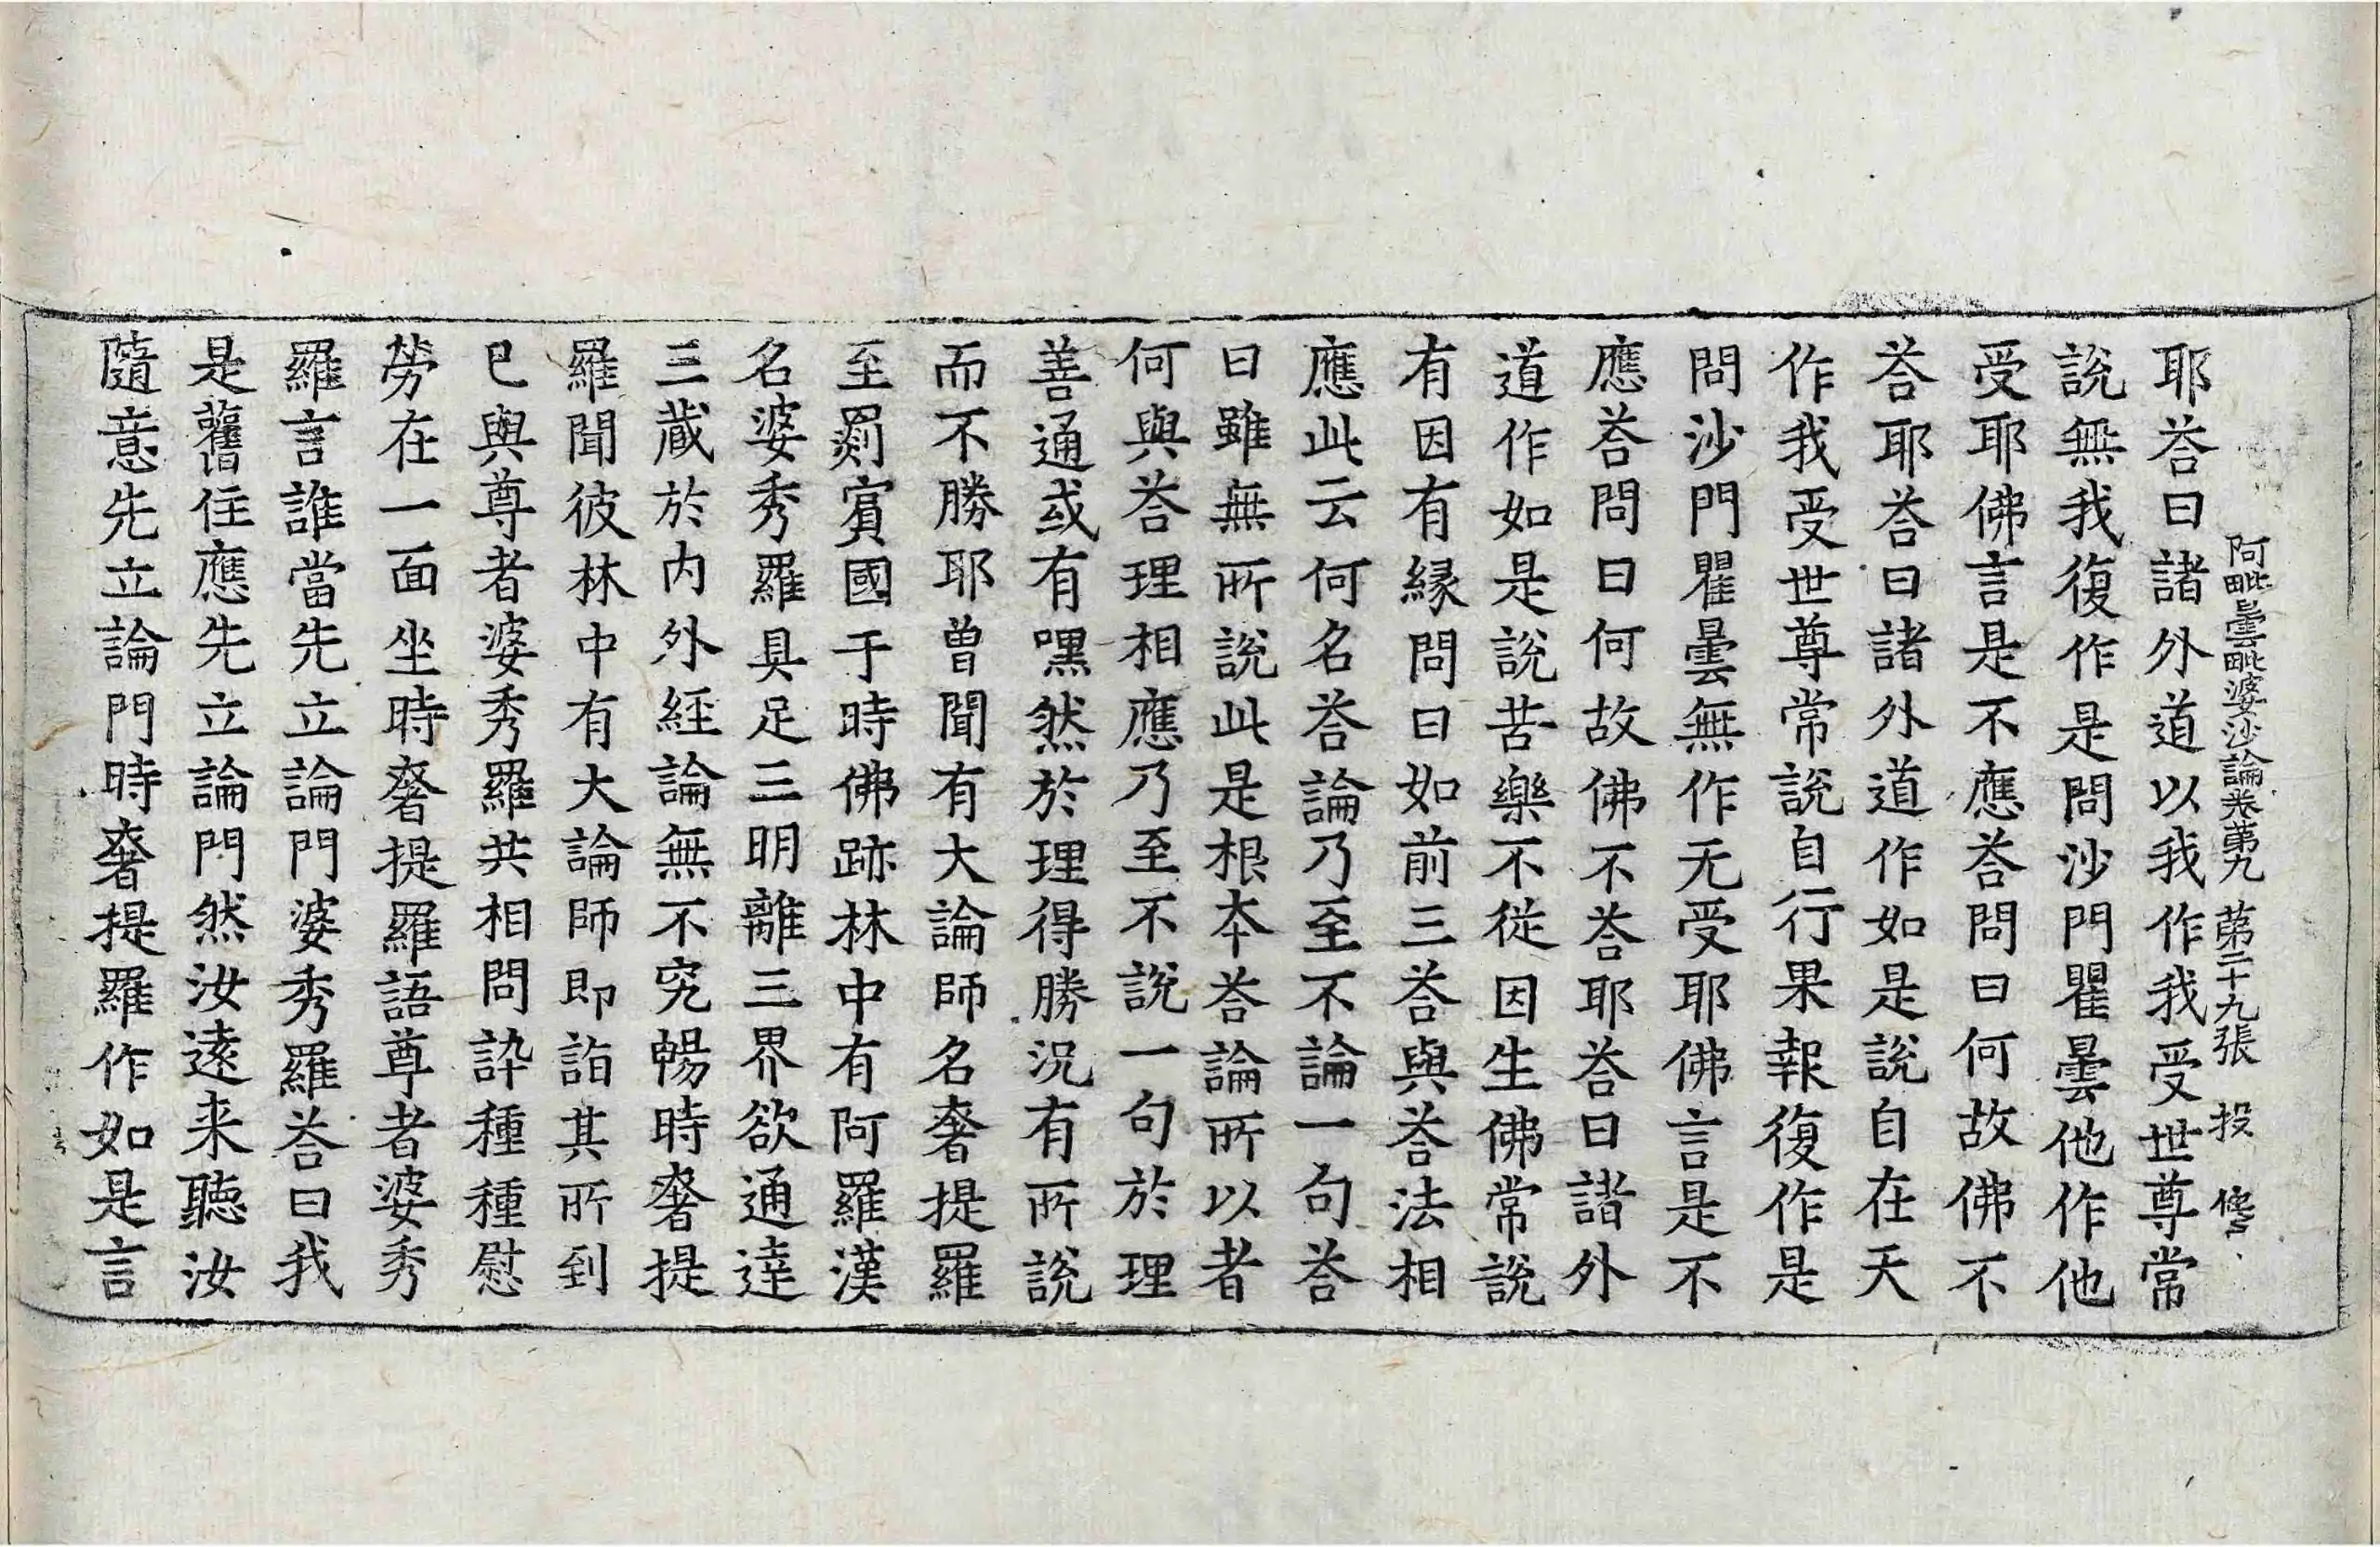 阿毗曇毗婆沙論卷第九 第二十九張 投
耶荅曰諸外道以我作我受世尊常
說無我復作是問沙門瞿曇他作他
受耶佛言是不應荅問曰何故佛不
荅耶荅曰諸外道作如是說自在天
作我受世尊常說自行果報復作是
問沙門瞿曇無作无受耶佛言是不
應荅問曰何故佛不荅耶荅曰諸外
道作如是說苦樂不從因生佛常說
有因有緣問曰如前三荅與荅法相
應此云何名荅論乃至不論一句荅
曰雖無所說此是根本荅論所以者
何與荅理相應乃至不說一句於理
善通或有嘿然於理得勝況有所說
而不勝耶曾聞有大論師名奢提羅
至罽賓國于時佛跡林中有阿羅漢
名婆秀羅具足三明離三界欲通達
三藏於內外經論無不究暢時奢提
羅聞彼林中有大論師即詣其所到
已與尊者婆秀羅共相問訊種種慰
勞在一面坐時奢提羅語尊者婆秀
羅言誰當先立論門婆秀羅荅曰我
是舊住應先立論門然汝遠来聽汝
隨意先立論門時奢提羅作如是言